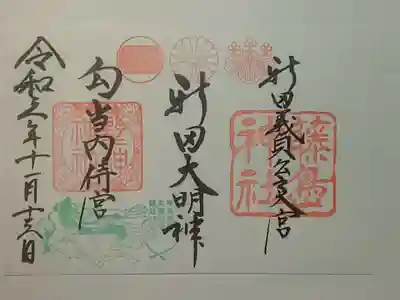 新田義貞公之宮
藤島神社
新田大明神
勾当内侍宮
令和六年十一月十六日